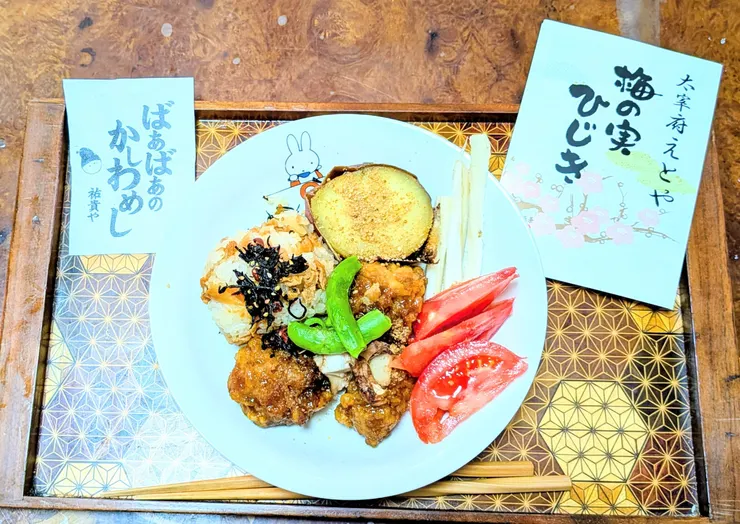 ばぁばぁの
かしわめし
祐貴や
太宰府えとや
梅の実
ひじき